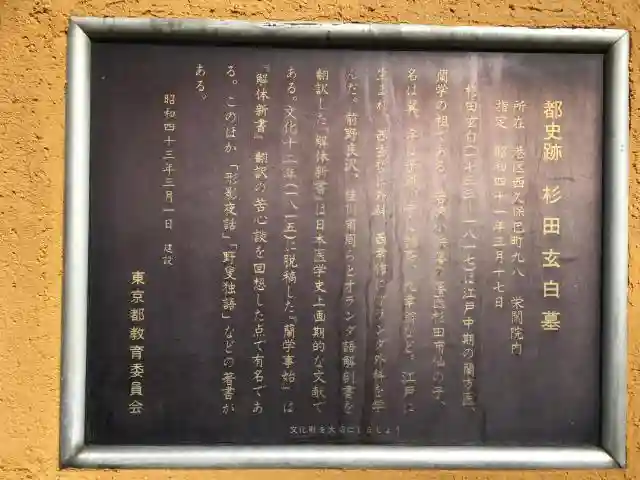 都史跡 杉田玄白墓
所在 港区西久保巴町九八 栄閑院内
指定 昭和四十一年三月十七日
杉田玄白(一七三三〜一八一七)は江戸中期の蘭方医、
蘭学の祖である。若狭小浜藩の藩医杉田甫仙の子、
名は翼、字は子鳳、
など。江戸に
生まれ、西玄哲に外科、
にオランダ外科を学
んだ。前野良沢、桂川甫周らとオランダ語解剖書を
翻訳した『解体新書』は日本医学史上画期的な文献で
ある。文化十二年(一八一五)に脱稿した『蘭学事始』は
『解体新書』翻訳の苦心談を回想した点で有名であ
る。このほか『形影夜話』『野叟独語』などの著書が
ある。
昭和四十三年三月一日 建設
東京都教育委員会
文化財を大切にしましょう